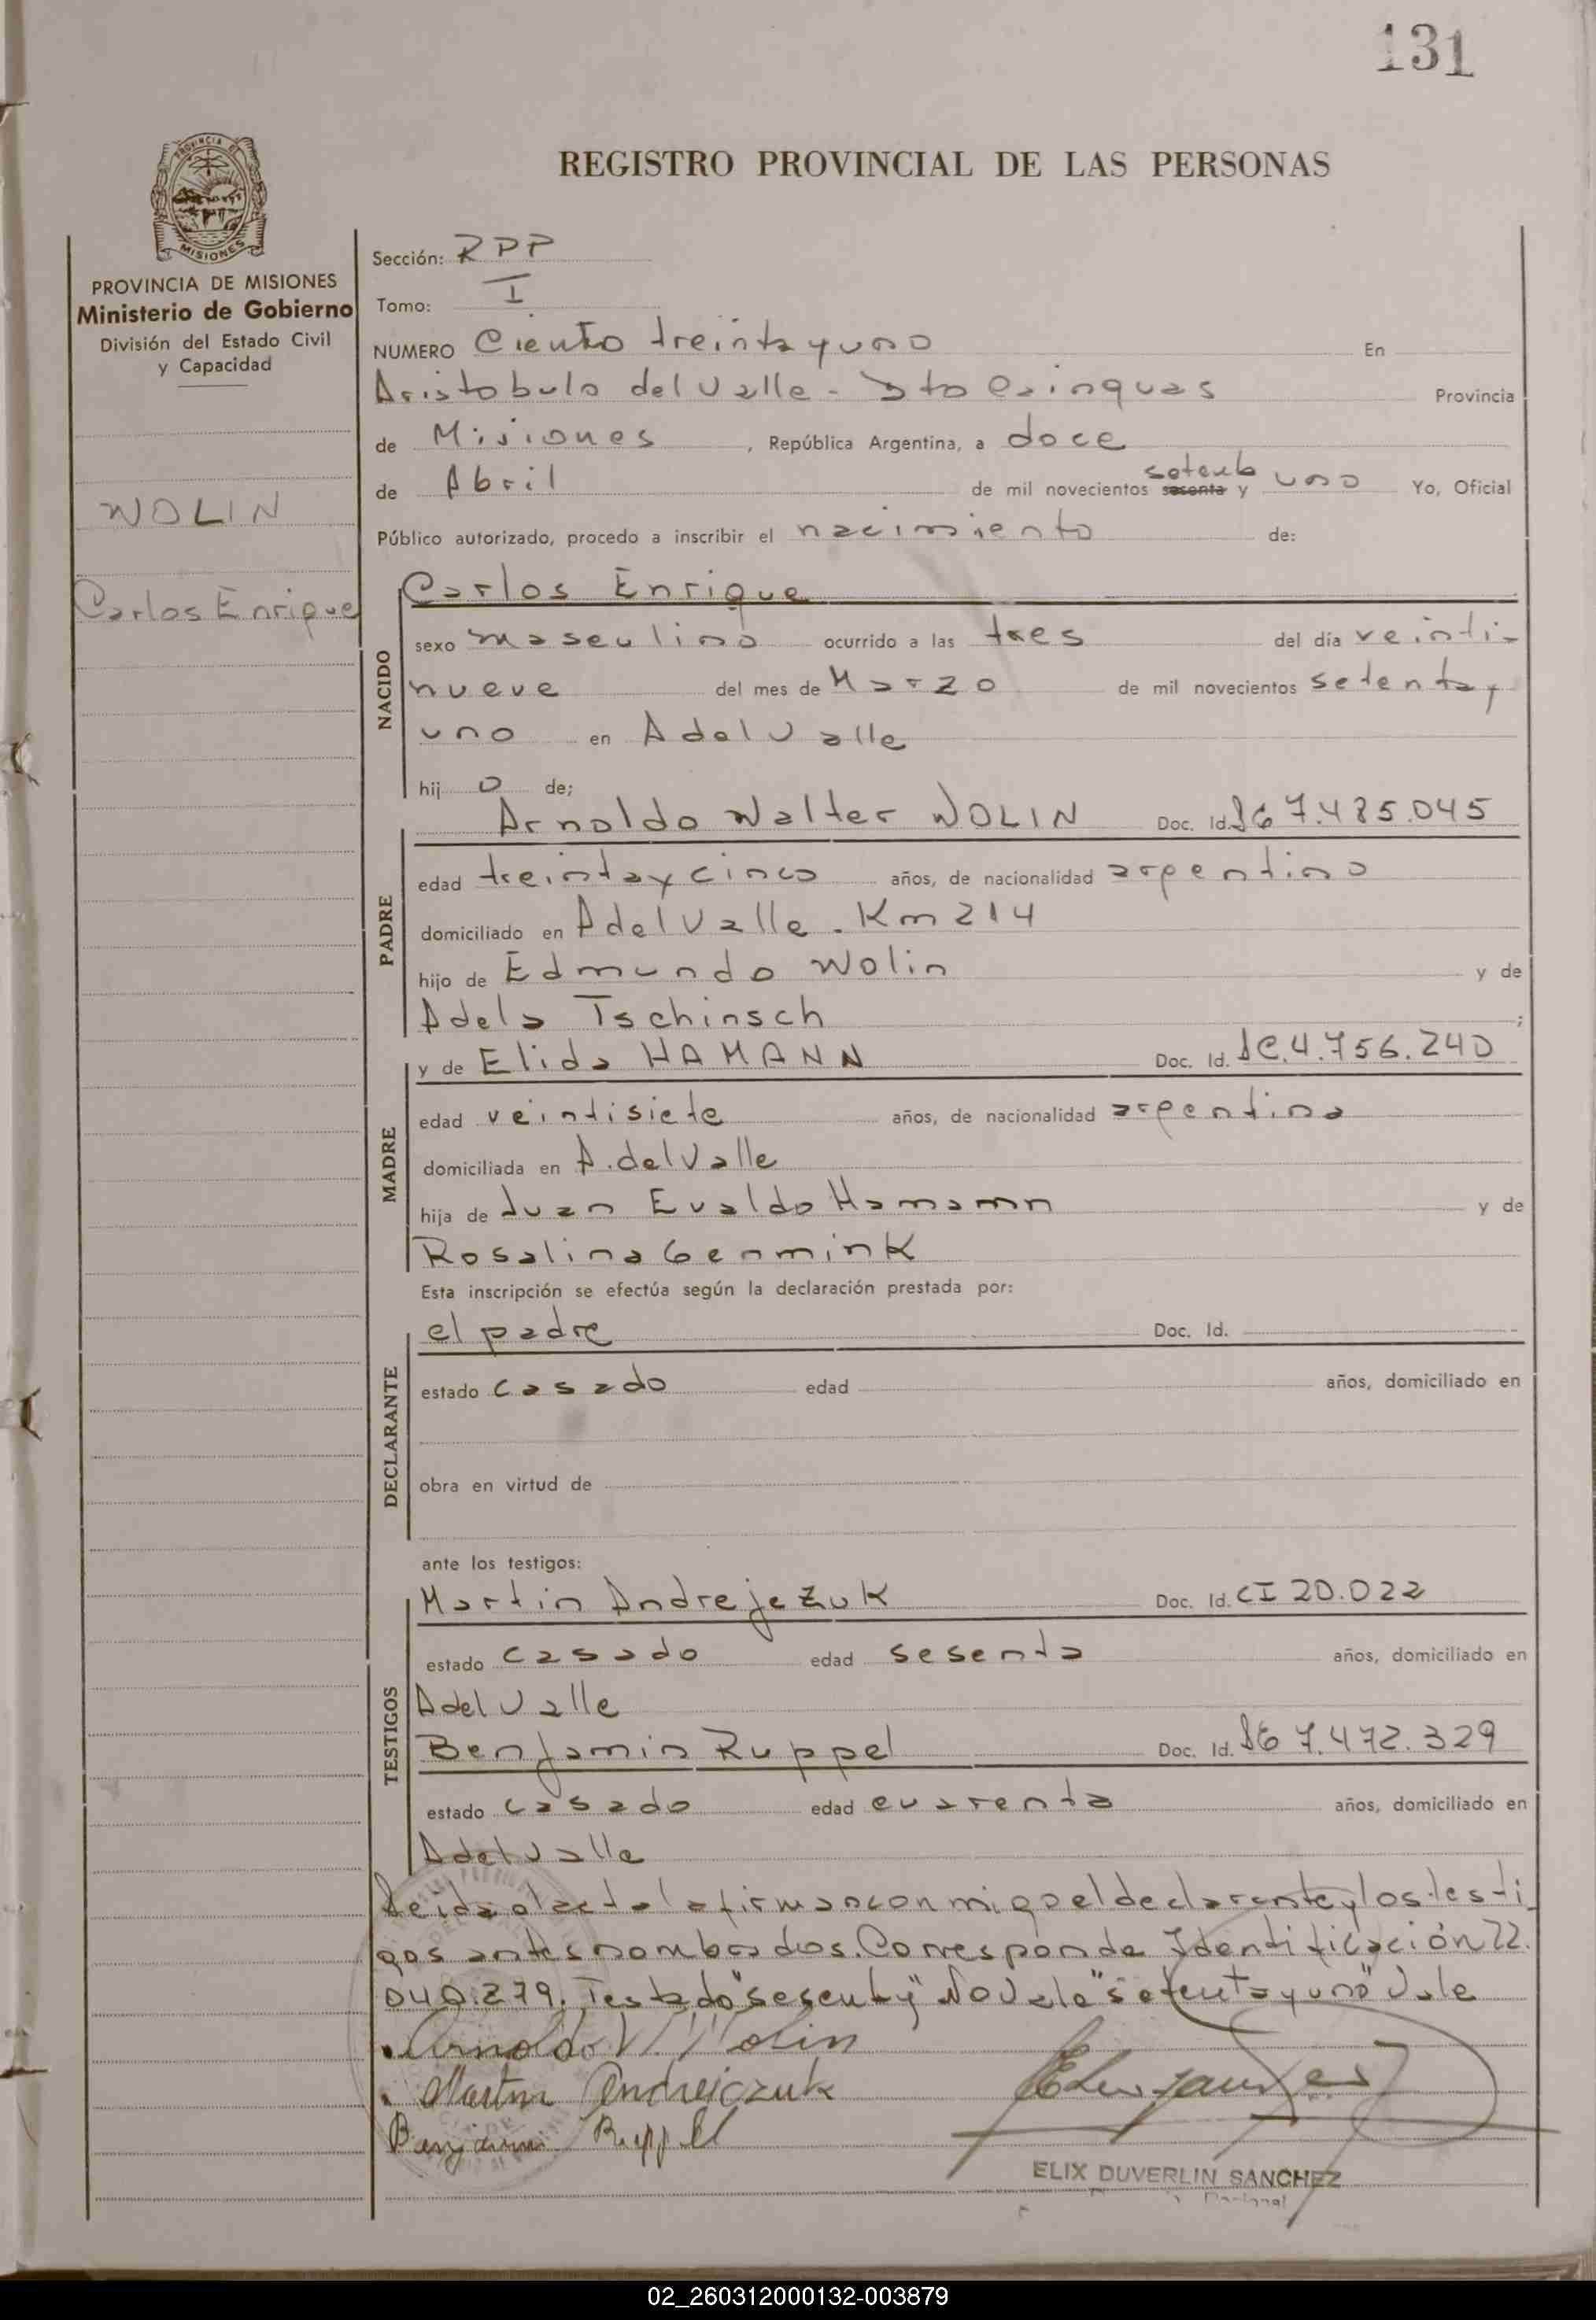 131
REGISTRO PROVINCIAL DE LAS PERSONAS
PROVINCIA DE MISIONES
Ministerio de Gobierno
División del Estado Civil
y Capacidad
WOLIN
Carlos Enrique
Sección: RPP
Tomo: I
NUMERO Ciento treinta y uno En
Aristobulo del Valle - Dto Cainguas Provincia
de Misiones, República Argentina, a doce
setenta
de Abril de mil novecientos sesenta y uno Yo, Oficial
Público autorizado, procedo a inscribir el nacimiento de:
NACIDO
Carlos Enrique
sexo masculino ocurrido a las tres del día veinti-
nueve del mes de Marzo de mil novecientos setenta y
uno en A del Valle
hijo de;
PADRE
Arnoldo Walter WOLIN Doc. Id. 7.485.045
edad treinta y cinco años, de nacionalidad argentino
domiciliado en A del Valle. Km 214
hijo de Edmundo Wolin y de
Adela Tschinsch;
MADRE
y de Elida HAMANN Doc. Id. 4.756.240
edad veintisiete años, de nacionalidad argentina
domiciliada en A. del Valle
hija de Juan Evaldo Hamann y de
Rosalina Genmink
Esta inscripción se efectúa según la declaración prestada por:
DECLARANTE
el padre Doc. Id.
estado casado edad años, domiciliado en
obra en virtud de
ante los testigos:
TESTIGOS
Martin Andrejczuk Doc. Id. CI 20.022
estado casado edad sesenta años, domiciliado en
A del Valle
Benjamin Ruppel Doc. Id. 7.472.329
estado casado edad cuarenta años, domiciliado en
A del Valle
Leida el acta la firman conmigo el declarante y los testi-
gos antes nombrados. Corresponde Identificación 22.
040.279. Testado "sesenta y" No Vale "setenta y uno" Vale
Arnoldo W. Wolin
Martin Andreiczuk
Benjamin Ruppel
ELIX DUVERLIN SANCHEZ
02_260312000132-003879